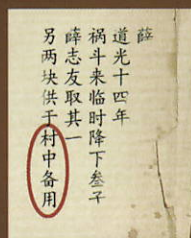 薛
道光十四年
祸斗来临时降下叁子
薛志友取其一
另两块供于村中备用